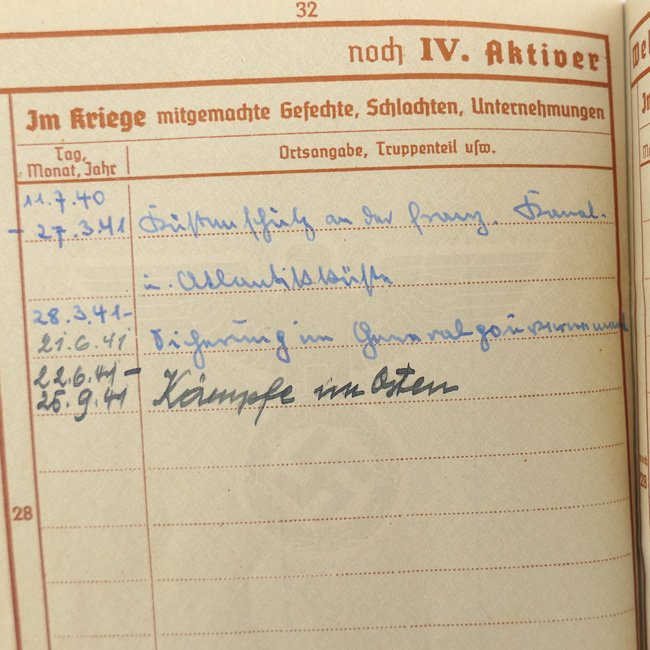 32
noch IV. Aktiver
Im Kriege mitgemachte Gefechte, Schlachten, Unternehmungen
Tag, Monat, Jahr
Ortsangabe, Truppenteil usw.
11.7.40
- 27.3.41 Küstenschutz an der franz. Kanal-
u. Atlantikküste
28.3.41-
21.6.41 Sicherung im Generalgouvernement
22.6.41-
25.9.41 Kämpfe im Osten
28